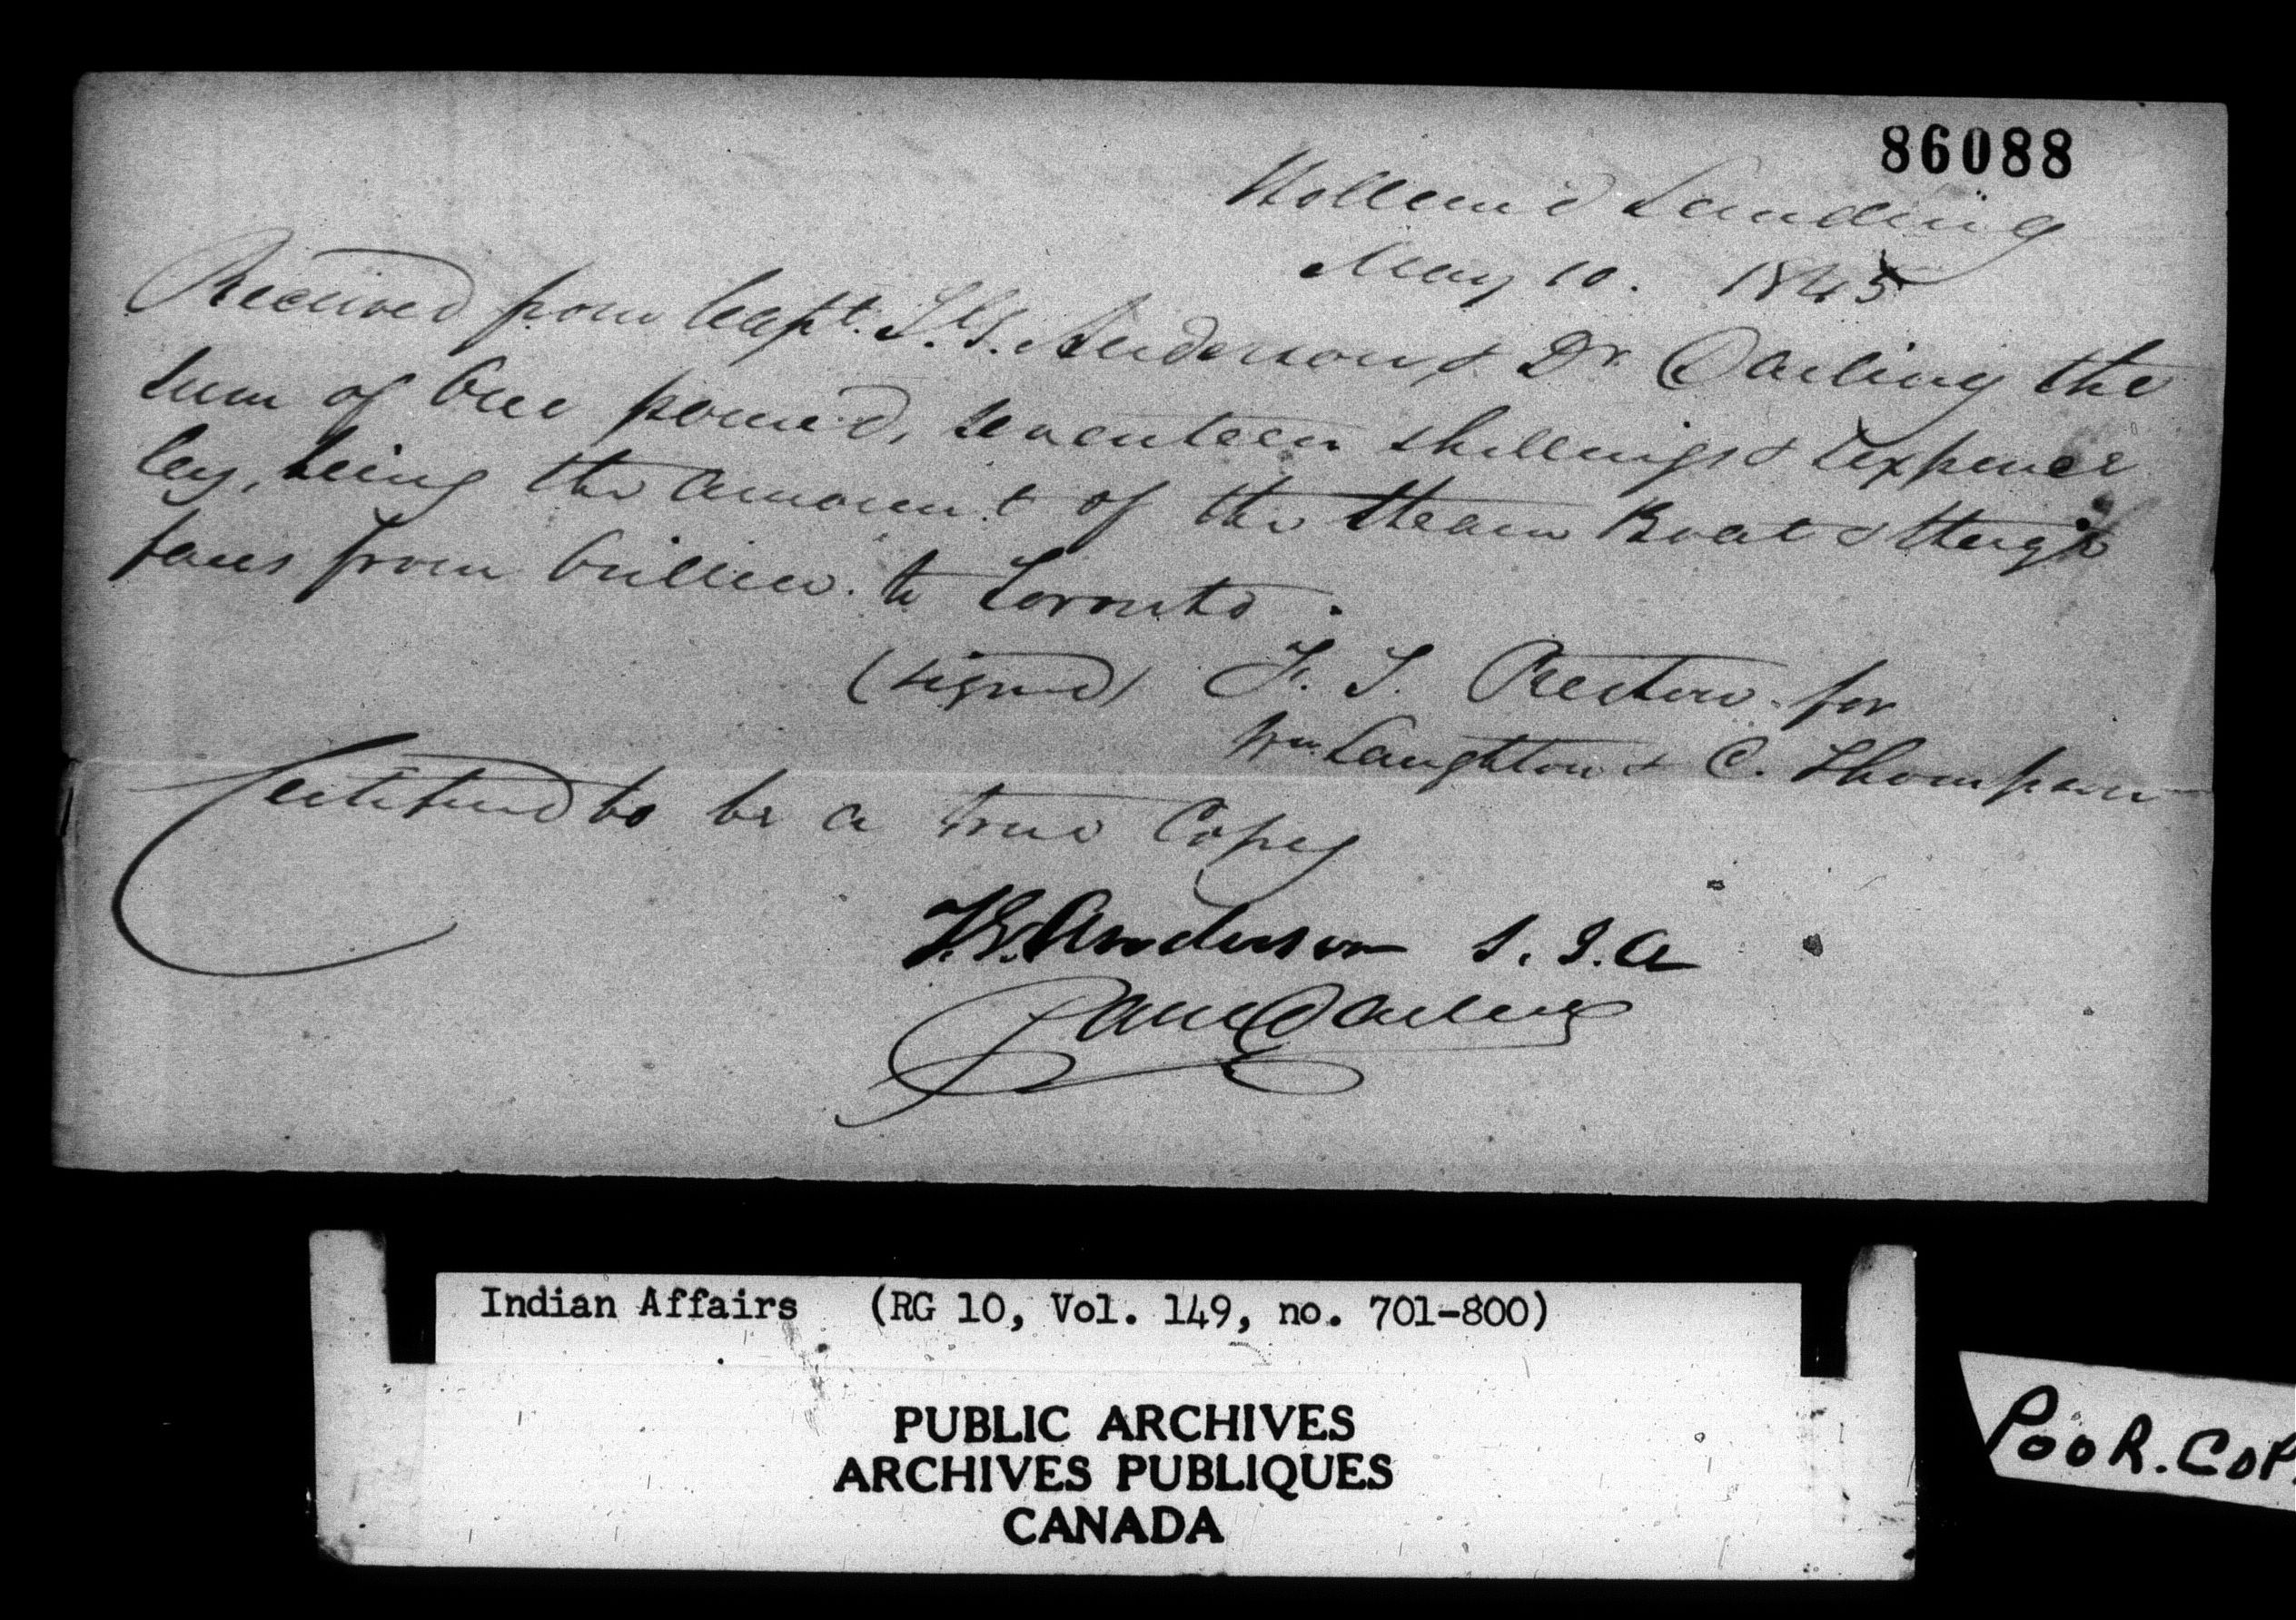 86088
Holland Landing
May 10. 1845
Received from Capt. T. G. Anderson, & Dr. Darling the
sum of One pound, seventeen shillings & sixpence
Cey, being the amount of the Steam Boat & Stage
fares from Orillia to Toronto.
(signed) F. T. Preston for
Wm. Laughton & C. Thompson
Certified to be a true Copy
T. G. Anderson S. I. A
Darling
Indian Affairs (RG 10, Vol. 149, no. 701-800)
PUBLIC ARCHIVES
ARCHIVES PUBLIQUES
CANADA
POOR. COP